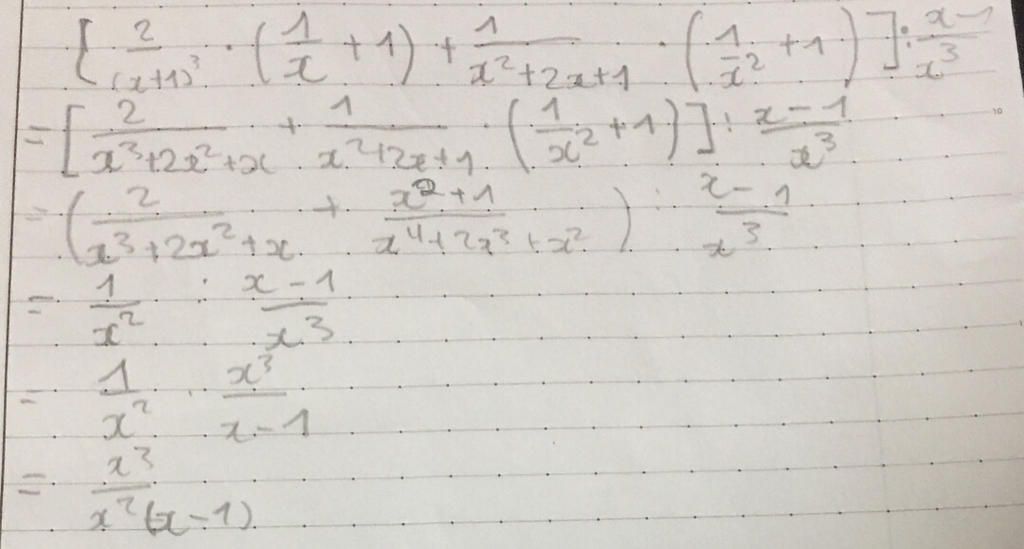 [2/(x+1)³ · (1/x + 1) + 1/(x²+2x+1) · (1/x² + 1)] : (x-1)/x³
= [2/(x³+2x²+x) + 1/(x²+2x+1) · (1/x² + 1)] : (x-1)/x³
= (2/(x³+2x²+x) + (x²+1)/(x⁴+2x³+x²)) : (x-1)/x³
= 1/x² : (x-1)/x³
= 1/x² · x³/(x-1)
= x³/(x²(x-1))